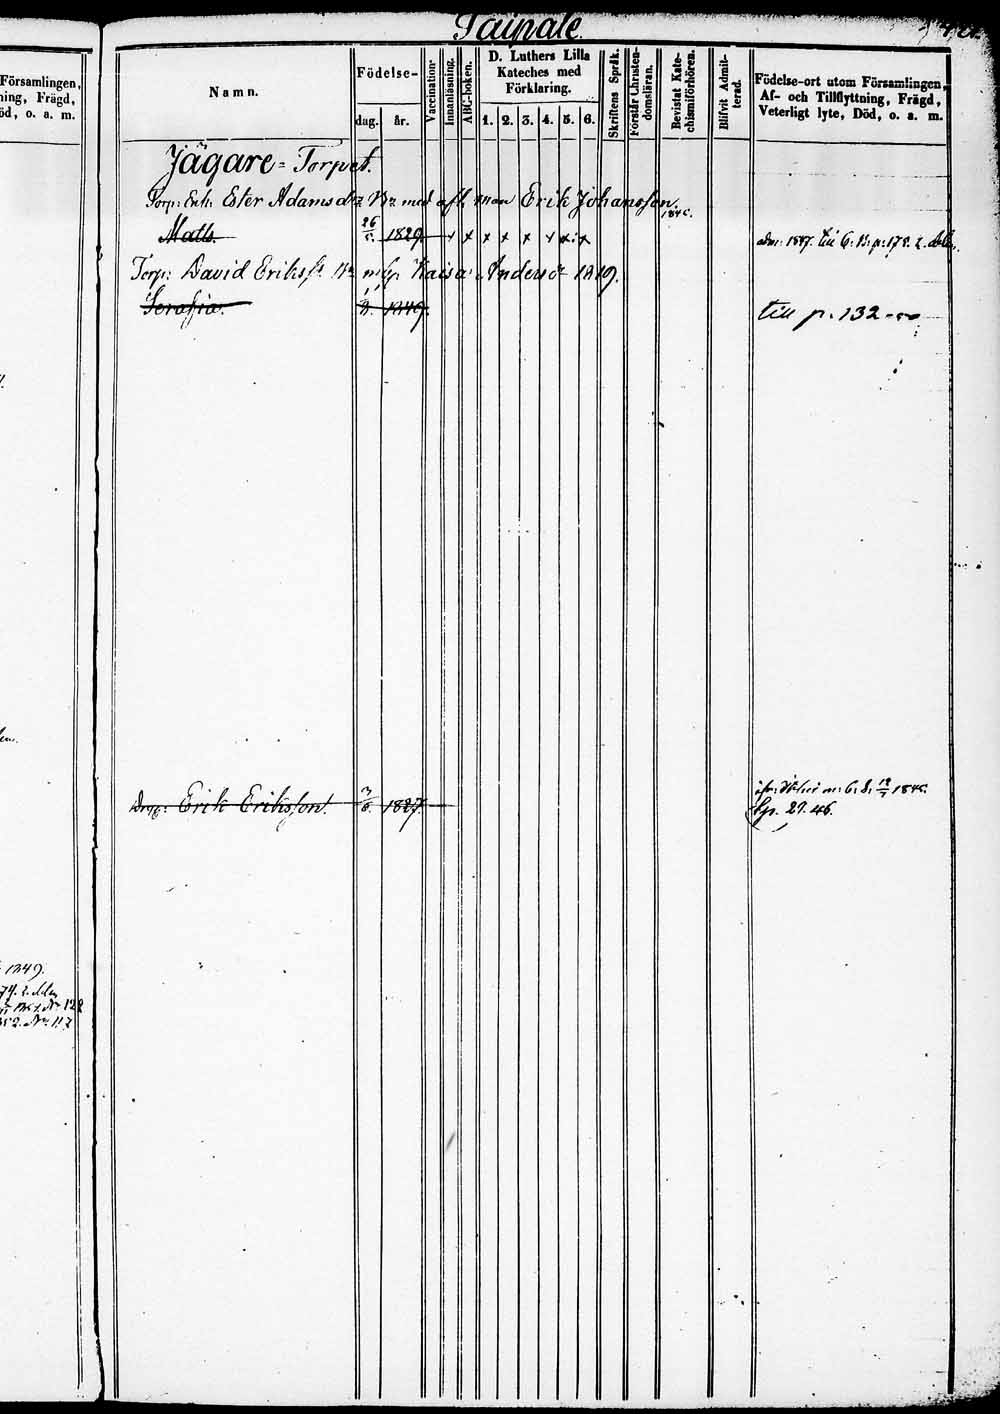 Taipale.
Församlingen,
ning, Frägd,
öd, o. a. m.
Namn.
Födelse-
dag.
år.
Vaccination
Innanläsning.
ABC-boken.
D. Luthers Lilla
Kateches med
Förklaring.
1. 2. 3. 4. 5. 6.
Skriftens Språk.
Förstår Christen-
domsläran.
Bevistat Kate-
chismiförhören.
Blifvit Admit-
terad.
Födelse-ort utom Församlingen,
Af- och Tillflyttning, Frägd,
Veterligt lyte, Död, o. a. m.
Jägare-Torpet.
Torp: Enk: Ester Adamsdr med afl. man Erik Johansson.
1845.
Matts. 26 1829. x x x x x x x x
1847. till p. 178. 2. delen.
Torp: David Eriksson Kaisa Andersdr 1819.
Serafia. 1849. till p. 132
Dreng: Erik Eriksson. 3/6. 1827.
12 1845.
p. 29. 46.
1849.
74. 2. delen
No 122
52. No 117